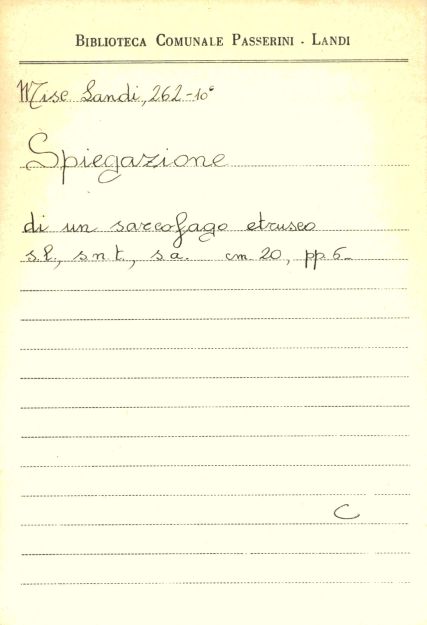 BIBLIOTECA COMUNALE PASSERINI - LANDI
Misc Landi, 262-10°
Spiegazione
di un sarcofago etrusco
s.l., s n t, s a. cm 20, pp 6_
C